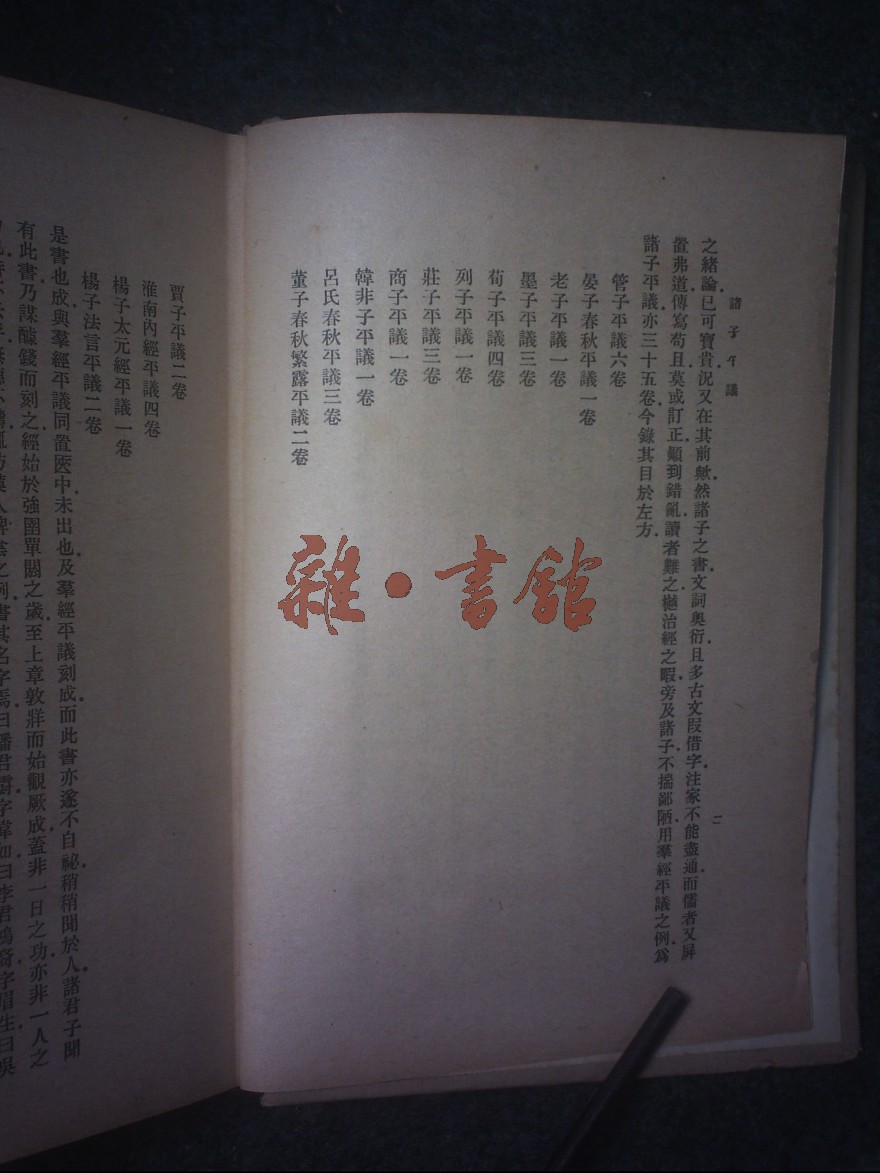 諸子平議
二
之緒論已可寶貴況又在其前歟然諸子之書文詞奧衍且多古文叚借字注家不能盡通而儒者又屏
置弗道傳寫苟且莫或訂正顛到錯亂讀者難之樾治經之暇旁及諸子不揣鄙陋用羣經平議之例爲
諸子平議亦三十五卷今錄其目於左方
管子平議六卷
晏子春秋平議一卷
老子平議一卷
墨子平議三卷
荀子平議四卷
列子平議一卷
莊子平議三卷
商子平議一卷
韓非子平議一卷
呂氏春秋平議三卷
董子春秋繁露平議二卷
賈子平議二卷
淮南內經平議四卷
楊子太元經平議一卷
楊子法言平議二卷
是書也成與羣經平議同置匧中未出也及羣經平議刻成而此書亦遂不自祕稍稍聞於人諸君子聞
有此書乃謀醵錢而刻之經始於強圉單閼之歲至上章敦牂而始觀厥成蓋非一日之功亦非一人之
碑陰之例書其名字焉曰潘君霨字偉如曰李君鴻裔字眉生曰吳
雜·書館